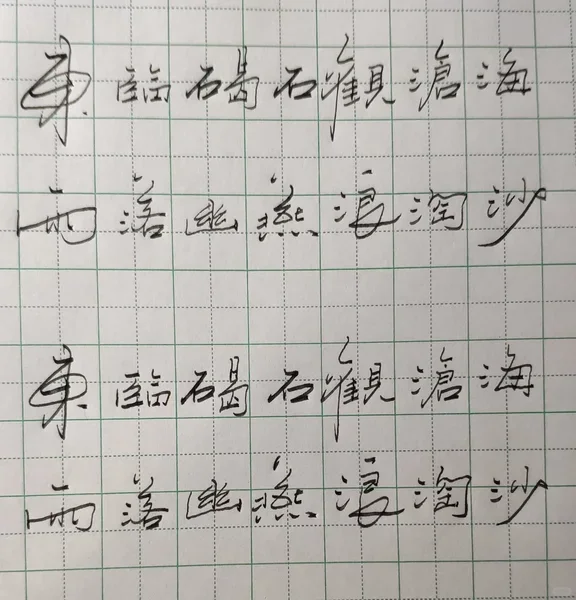 東臨碣石觀滄海
雨落幽燕浪淘沙
東臨碣石觀滄海
雨落幽燕浪淘沙